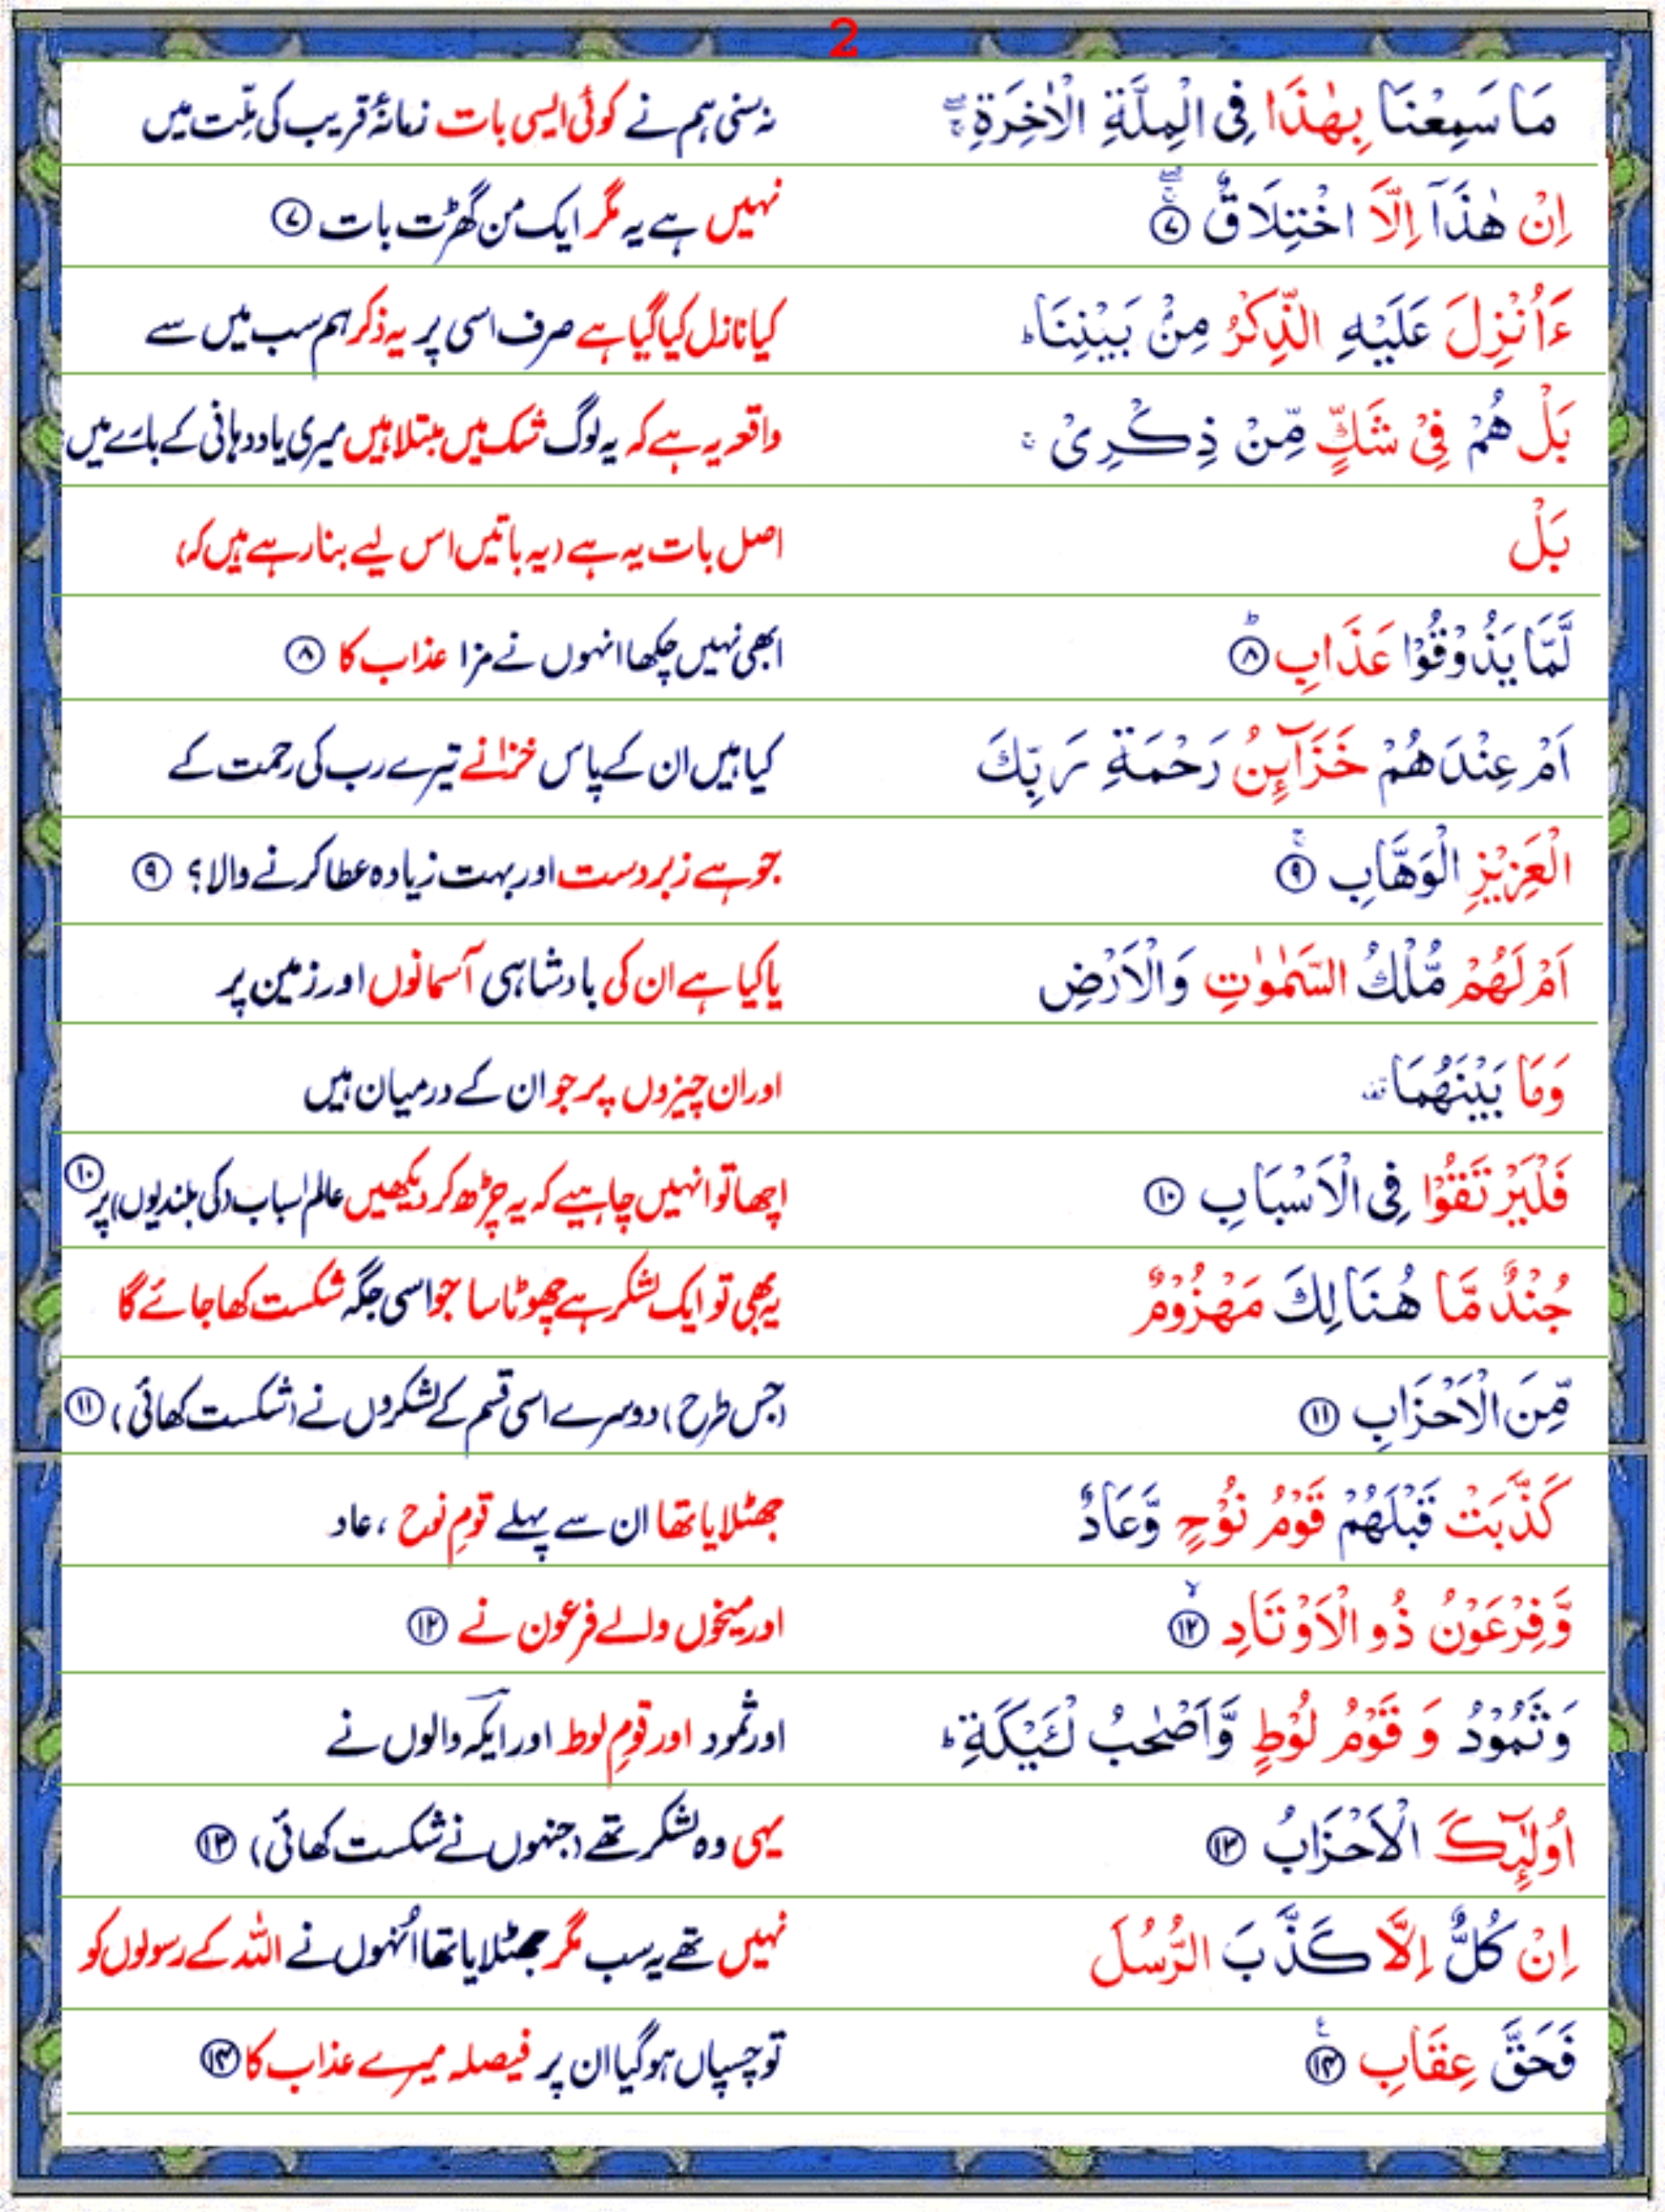 2
مَا سَمِعْنَا بِهٰذَا فِي الْمِلَّةِ الْاٰخِرَةِ ۚ نہ سنی ہم نے کوئی ایسی بات زمانۂ قریب کی ملّت میں
اِنْ هٰذَاۤ اِلَّا اخْتِلَاقٌ ۝۷ نہیں ہے یہ مگر ایک من گھڑت بات ۝۷
ءَاُنْزِلَ عَلَيْهِ الذِّكْرُ مِنْۢ بَيْنِنَا ؕ کیا نازل کیا گیا ہے صرف اسی پر یہ ذکر ہم سب میں سے
بَلْ هُمْ فِيْ شَكٍّ مِّنْ ذِكْرِيْ ۚ واقعہ یہ ہے کہ یہ لوگ شک میں مبتلا ہیں میری یاددہانی کے بارے میں
بَلْ اصل بات یہ ہے (یہ باتیں اس لیے بنا رہے ہیں کہ)
لَّمَّا يَذُوْقُوْا عَذَابِ ۝۸ؕ ابھی نہیں چکھا انہوں نے مزا عذاب کا ۝۸
اَمْ عِنْدَهُمْ خَزَآىِٕنُ رَحْمَةِ رَبِّكَ کیا ہیں ان کے پاس خزانے تیرے رب کی رحمت کے
الْعَزِيْزِ الْوَهَّابِ ۝۹ۚ جو ہے زبردست اور بہت زیادہ عطا کرنے والا؟ ۝۹
اَمْ لَهُمْ مُّلْكُ السَّمٰوٰتِ وَالْاَرْضِ یا کیا ہے ان کی بادشاہی آسمانوں اور زمین پر
وَمَا بَيْنَهُمَا قف اور ان چیزوں پر جو ان کے درمیان ہیں
فَلْيَرْتَقُوْا فِي الْاَسْبَابِ ۝۱۰ اچھا تو انہیں چاہیے کہ یہ چڑھ کر دیکھیں عالم اسباب (کی بلندیوں) پر ۝۱۰
جُنْدٌ مَّا هُنَالِكَ مَهْزُوْمٌ یہ بھی تو ایک لشکر ہے چھوٹا سا جو اسی جگہ شکست کھا جائے گا
مِّنَ الْاَحْزَابِ ۝۱۱ (جس طرح) دوسرے اسی قسم کے لشکروں نے (شکست کھائی) ۝۱۱
كَذَّبَتْ قَبْلَهُمْ قَوْمُ نُوْحٍ وَّعَادٌ جھٹلایا تھا ان سے پہلے قومِ نوح ، عاد
وَّفِرْعَوْنُ ذُو الْاَوْتَادِ ۝۱۲ۙ اور میخوں والے فرعون نے ۝۱۲
وَثَمُوْدُ وَ قَوْمُ لُوْطٍ وَّاَصْحٰبُ لْـَٔيْكَةِ ؕ اور ثمود اور قومِ لوط اور ایکہ والوں نے
اُولٰٓىِٕكَ الْاَحْزَابُ ۝۱۳ یہی وہ لشکر تھے (جنہوں نے شکست کھائی) ۝۱۳
اِنْ كُلٌّ اِلَّا كَذَّبَ الرُّسُلَ نہیں تھے یہ سب مگر جھٹلایا تھا اُنہوں نے اللہ کے رسولوں کو
فَحَقَّ عِقَابِ ۝۱۴ع تو چسپاں ہو گیا ان پر فیصلہ میرے عذاب کا ۝۱۴